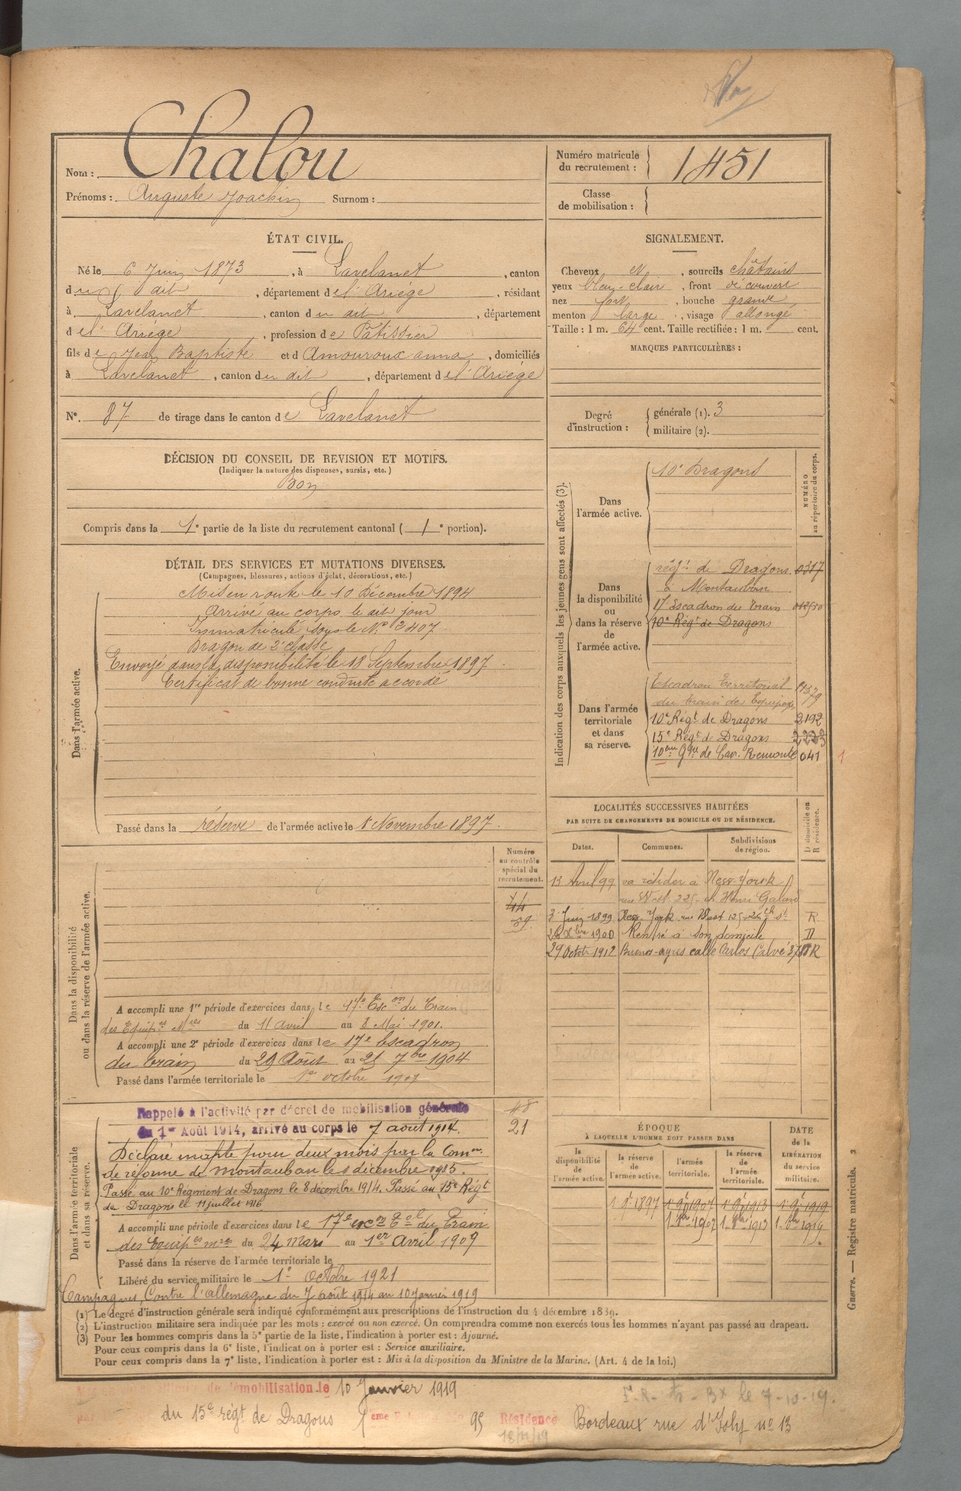 Nom : Chalou
Prénoms : Auguste Joachin Surnom :
Numéro matricule du recrutement : 1451
Classe de mobilisation :
ÉTAT CIVIL.
Né le 6 Juin 1873, à Lavelanet, canton
du dit, département de l'Ariège, résidant
à Lavelanet, canton du dit, département
de l'Ariège, profession de Pâtissier
fils de Jean Baptiste et d Amouroux anna, domiciliés
à Lavelanet, canton du dit, département de l'Ariège
N°. 87 de tirage dans le canton de Lavelanet
SIGNALEMENT.
Cheveux et, sourcils châtains
yeux bleu-clair, front découvert
nez fort, bouche grande
menton large, visage allongé
Taille : 1 m. 64 cent. Taille rectifiée : 1 m. cent.
MARQUES PARTICULIÈRES :
Degré d'instruction : générale (1). 3
militaire (2).
DÉCISION DU CONSEIL DE REVISION ET MOTIFS.
(Indiquer la nature des dispenses, sursis, etc.)
Bon
Compris dans la 1e partie de la liste du recrutement cantonal (1e portion).
DÉTAIL DES SERVICES ET MUTATIONS DIVERSES.
(Campagnes, blessures, actions d'éclat, décorations, etc.)
Dans l'armée active.
Mis en route le 10 Décembre 1894
Arrivé au corps le dit jour
Immatriculé sous le N° 2407
Dragon de 2e classe
Envoyé dans la disponibilité le 18 Septembre 1897.
Certificat de bonne conduite accordé
Passé dans la réserve de l'armée active le 1 Novembre 1897.
Indication des corps auxquels les jeunes gens sont affectés (3).
NUMÉRO au répertoire du corps.
Dans l'armée active.
10e Dragons
Dans la disponibilité ou dans la réserve de l'armée active.
régt de Dragons 0317
à Montauban
17 escadron du train
10e Régt de Dragons
Dans l'armée territoriale et dans sa réserve.
Escadron Territorial
du train des Equipages
10e Régt de Dragons 3192
15e Régt de Dragons
10ème Gpe de Cav. Remonte 041
LOCALITÉS SUCCESSIVES HABITÉES
PAR SUITE DE CHANGEMENTS DE DOMICILE OU DE RÉSIDENCE.
Dates. Communes. Subdivisions de région. D domicile ou R résidence.
13 Avril 99 va résider à New-York
3 Juin 1899 New-York R
Xbre 1900 Rentré à son domicile D
29 Octobre 1912 Buenos-ayres calle Carlos Calvo R
Dans la disponibilité ou dans la réserve de l'armée active.
Numéro au contrôle spécial du recrutement.
44
59
A accompli une 1re période d'exercices dans le 17e Escon du Train
des Equip. Mres du 11 avril au 8 Mai 1901.
A accompli une 2e période d'exercices dans le 17e escadron
du train du 29 Août au 25 7bre 1904
Passé dans l'armée territoriale le 1er octobre 1907
Dans l'armée territoriale et dans sa réserve.
48
21
Rappelé à l'activité par décret de mobilisation générale
du 1er Août 1914, arrivé au corps le 7 août 1914.
Déclaré inapte pour deux mois par la Comm.
de réforme de montauban le 5 décembre 1915.
Passé au 10e Régiment de Dragons le 8 décembre 1914. Passé au 15e Régt
de Dragons le 11 juillet 1916
A accompli une période d'exercices dans le 17e du Train
des Equip. mres du 24 mars au 1er Avril 1909
Passé dans la réserve de l'armée territoriale le
Libéré du service militaire le 1er Octobre 1921
Campagnes Contre l'allemagne du 7 août 1914 au 10 janvier 1919
ÉPOQUE
À LAQUELLE L'HOMME DOIT PASSER DANS
la disponibilité de l'armée active. la réserve de l'armée active. l'armée territoriale. la réserve de l'armée territoriale. DATE de la LIBÉRATION du service militaire.
1 9e 1897 1 9e 1907 1 9e 1913 1 9e 1919
1. 8bre 1907 1. 8bre 1913 1. 8bre 1919
(1) Le degré d'instruction générale sera indiqué conformément aux prescriptions de l'instruction du 4 décembre 1889.
(2) L'instruction militaire sera indiquée par les mots : exercé ou non exercé. On comprendra comme non exercés tous les hommes n'ayant pas passé au drapeau.
(3) Pour les hommes compris dans la 5e partie de la liste, l'indication à porter est : Ajourné.
Pour ceux compris dans la 6e liste, l'indication à porter est : Service auxiliaire.
Pour ceux compris dans la 7e liste, l'indication à porter est : Mis à la disposition du Ministre de la Marine. (Art. 4 de la loi.)
Guerre. — Registre matricule. 3
démobilisation le 10 Janvier 1919
du 15e régt de Dragons 95 Résidence Bordeaux rue d'Joly n° 13
le 7-10-19.